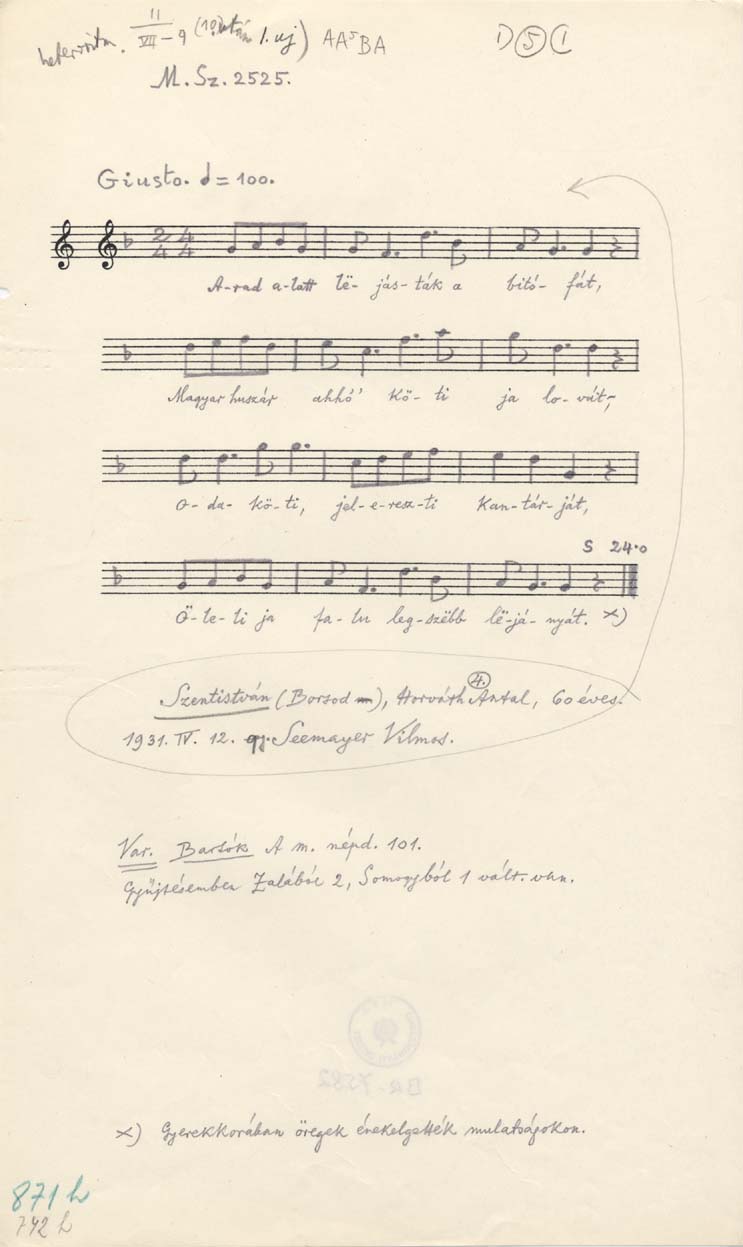 heteroritm. II/VII – 9 (10 után 1. uj) AA⁵BA D ⑤ (
M. Sz. 2525.
Giusto. = 100.
2/4 4/4
A-rad a-latt lë- jás- ták a bitó- fát,
Magyar huszár ahhó' kö- ti ja lo- vát;
O- da- kö- ti, jel-e-resz-ti Kan- tár- ját,
S 24.0
Ö- le- li ja fa- lu leg-szëbb lë-já- nyát. x)
4.
Szentistván (Borsod m), Horváth Antal, 60 éves.
1931. IV. 12. gy. Seemayer Vilmos.
Var. Bartók A m. népd. 101.
Gyűjtésemben Zalából 2, Somogyból 1 vált. van.
BR-7582
x) Gyerekkorában öregek énekelgették mulatságokon.
871 h
742 h